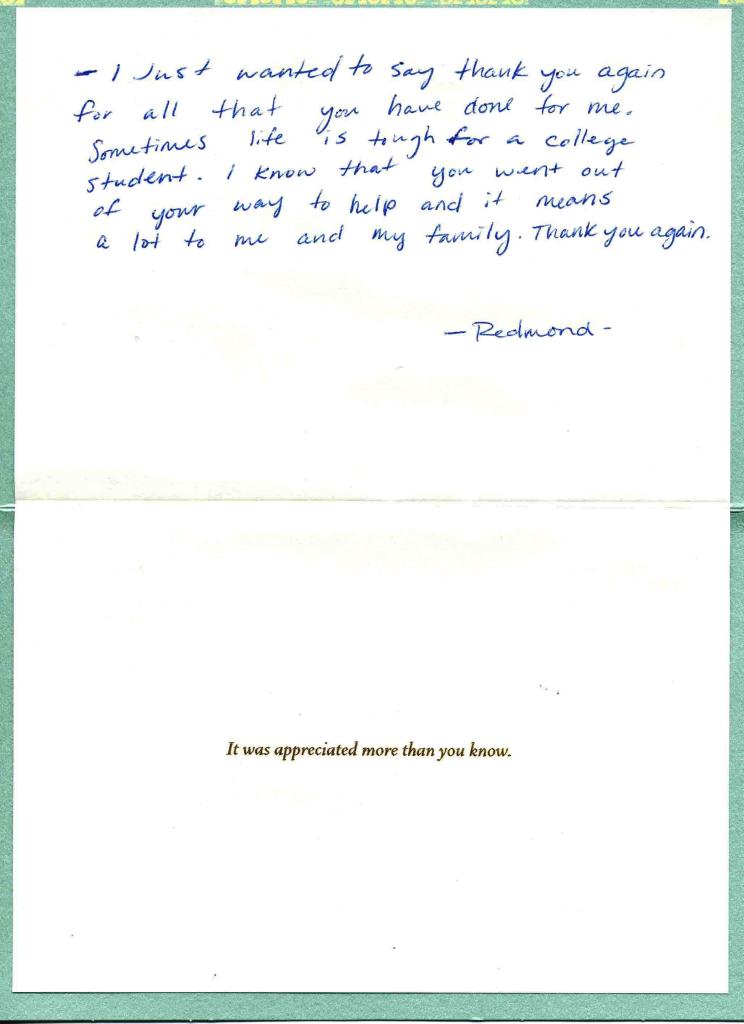 - I Just wanted to say thank you again
for all that you have done for me.
Sometimes life is tough for a college
student. I know that you went out
of your way to help and it means
a lot to me and my family. Thank you again.
- Redmond -
It was appreciated more than you know.